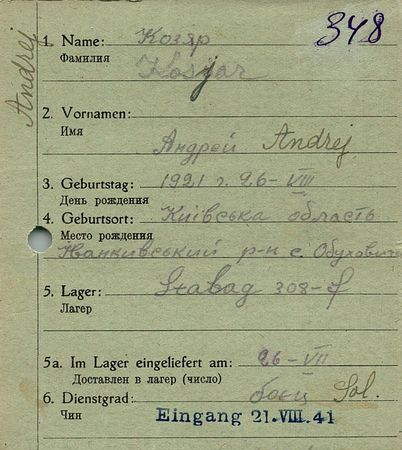 Andrej
348
1. Name: Козяр
Фамилия Kosjar
2. Vornamen:
Имя
Андрей Andrej
3. Geburtstag: 1921 г. 26-VIII
День рождения
4. Geburtsort: Київська область
Место рождения
Іванкивський р-н с. Обуховичи
5. Lager: Stalag 308-f
Лагер
5a. Im Lager eingeliefert am: 26-VII
Доставлен в лагер (число)
6. Dienstgrad: боец Sol.
Чин
Eingang 21. VIII. 41